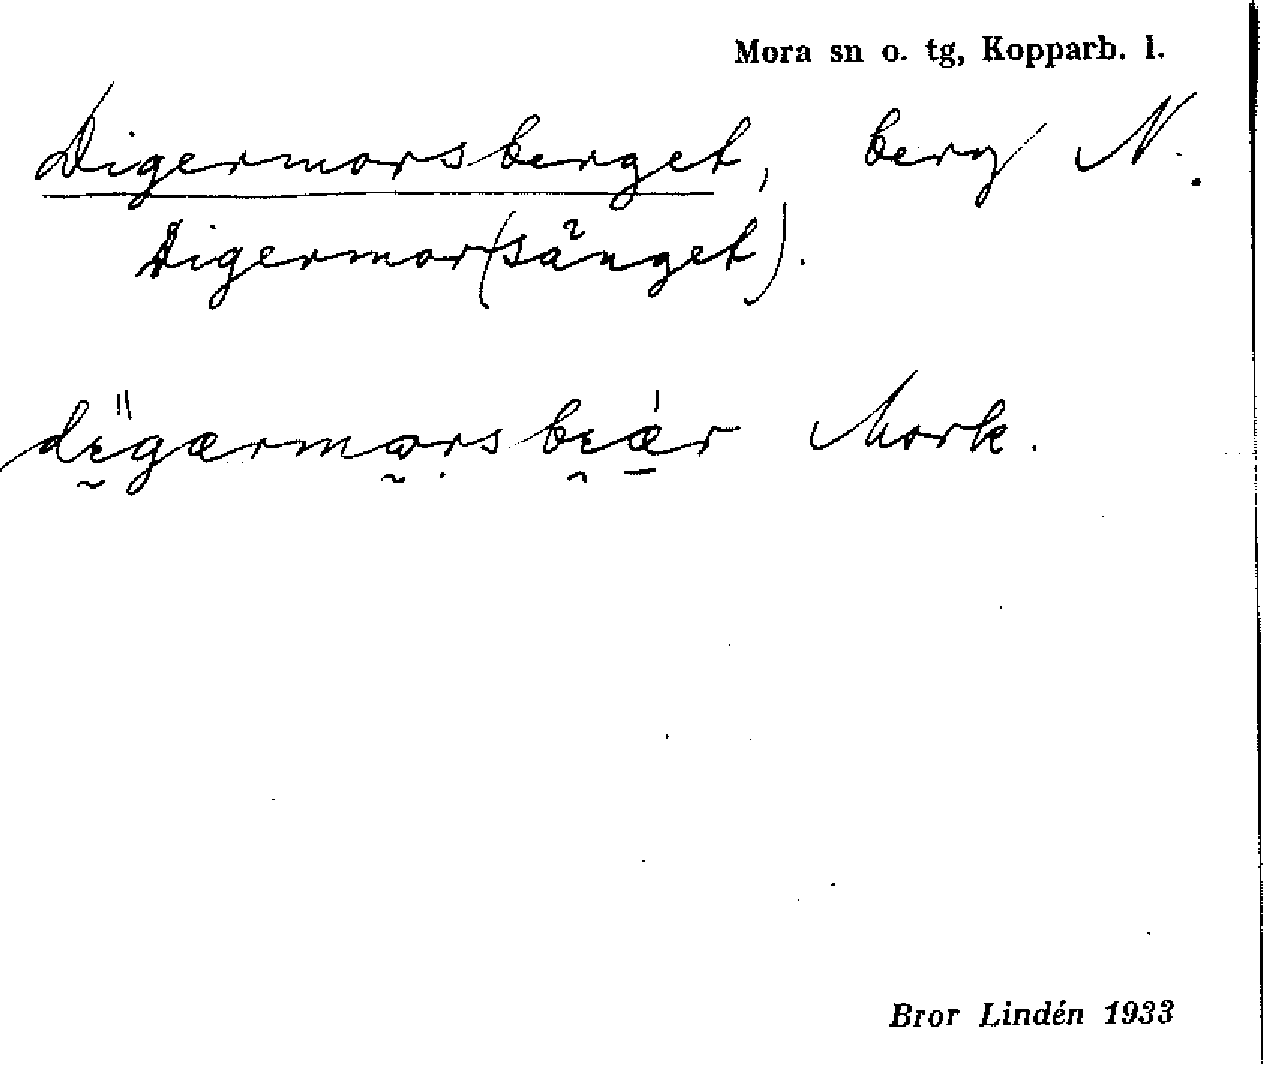 Mora sn o. tg, Kopparb. l.
Digermorsberget, berg N.
Digermor(sänget).
dïgærmorsbeær Mork.
Bror Lindén 1933